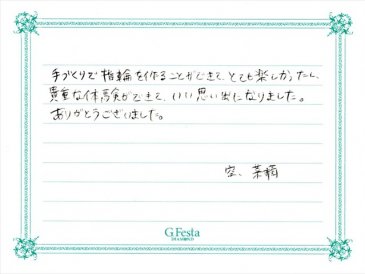 手づくりで指輪を作ることができて、とても楽しかったし、
貴重な体験ができて、いい思い出になりました。
ありがとうございました。
空、菜摘
G.Festa
DIAMOND